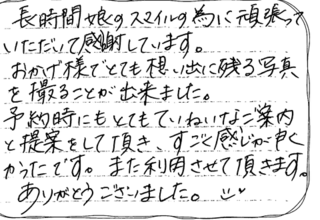 長時間娘のスマイルの為に頑張って
いただいて感謝しています。
おかげ様でとても想い出に残る写真
を撮ることが出来ました。
予約時にもとてもていねいなご案内
と提案をして頂き、すごく感じが良く
かったです。また利用させて頂きます。
ありがとうございました。